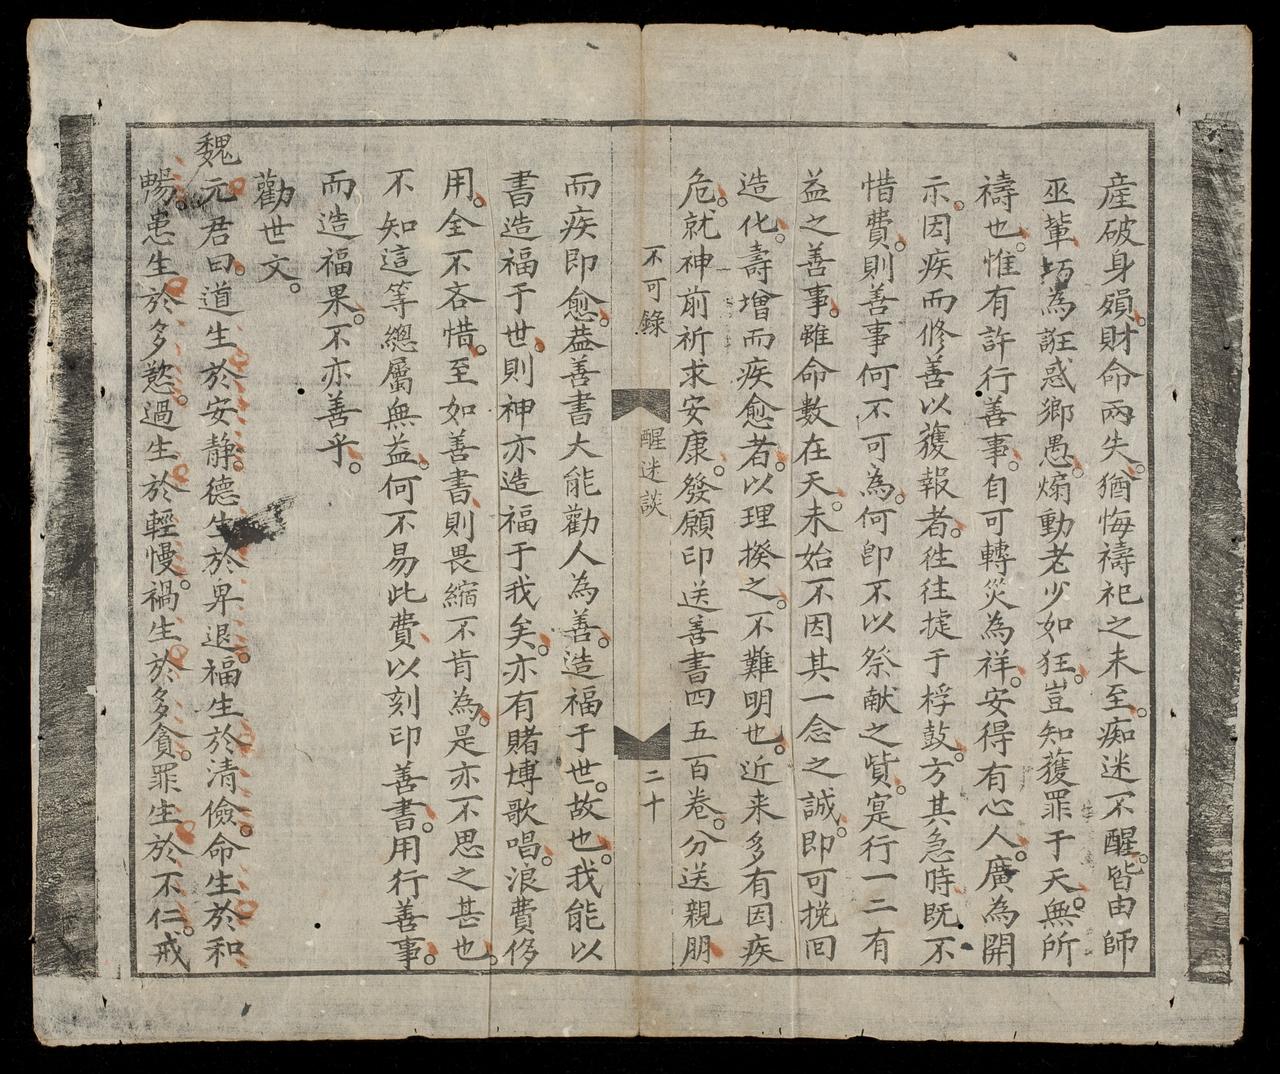 産破身殞。財命兩失。猶悔禱祀之未至。痴迷不醒。皆由師
巫輩巧為誑惑鄉愚。煽動老少如狂。豈知獲罪于天。無所
禱也。惟有許行善事。自可轉災為祥。安得有心人。廣為開
示。因疾而修善以獲報者。往往捷于桴鼓。方其急時。既不
惜費。則善事何不可為。何卽不以祭献之貲。寔行一二有
益之善事。雖命數在天。未始不因其一念之誠。即可挽回
造化。壽增而疾愈者。以理揆之。不難明也。近来多有因疾
危。就神前祈求安康。發願印送善書四五百卷。分送親朋
不可錄
醒迷談
二十
而疾即愈。葢善書大能勸人為善。造福于世。故也。我能以
書造福于世。則神亦造福于我矣。亦有賭博歌唱。浪費侈
用。全不吝惜。至如善書。則畏縮不肯為。是亦不思之甚也。
不知這等總屬無益。何不易此費。以刻印善書。用行善事。
而造福果。不亦善乎。
勸世文。
魏元君曰。道生於安静。德生於卑退。福生於清儉。命生於和
暢。患生於多慾。過生於輕慢。禍生於多貪。罪生於不仁。戒